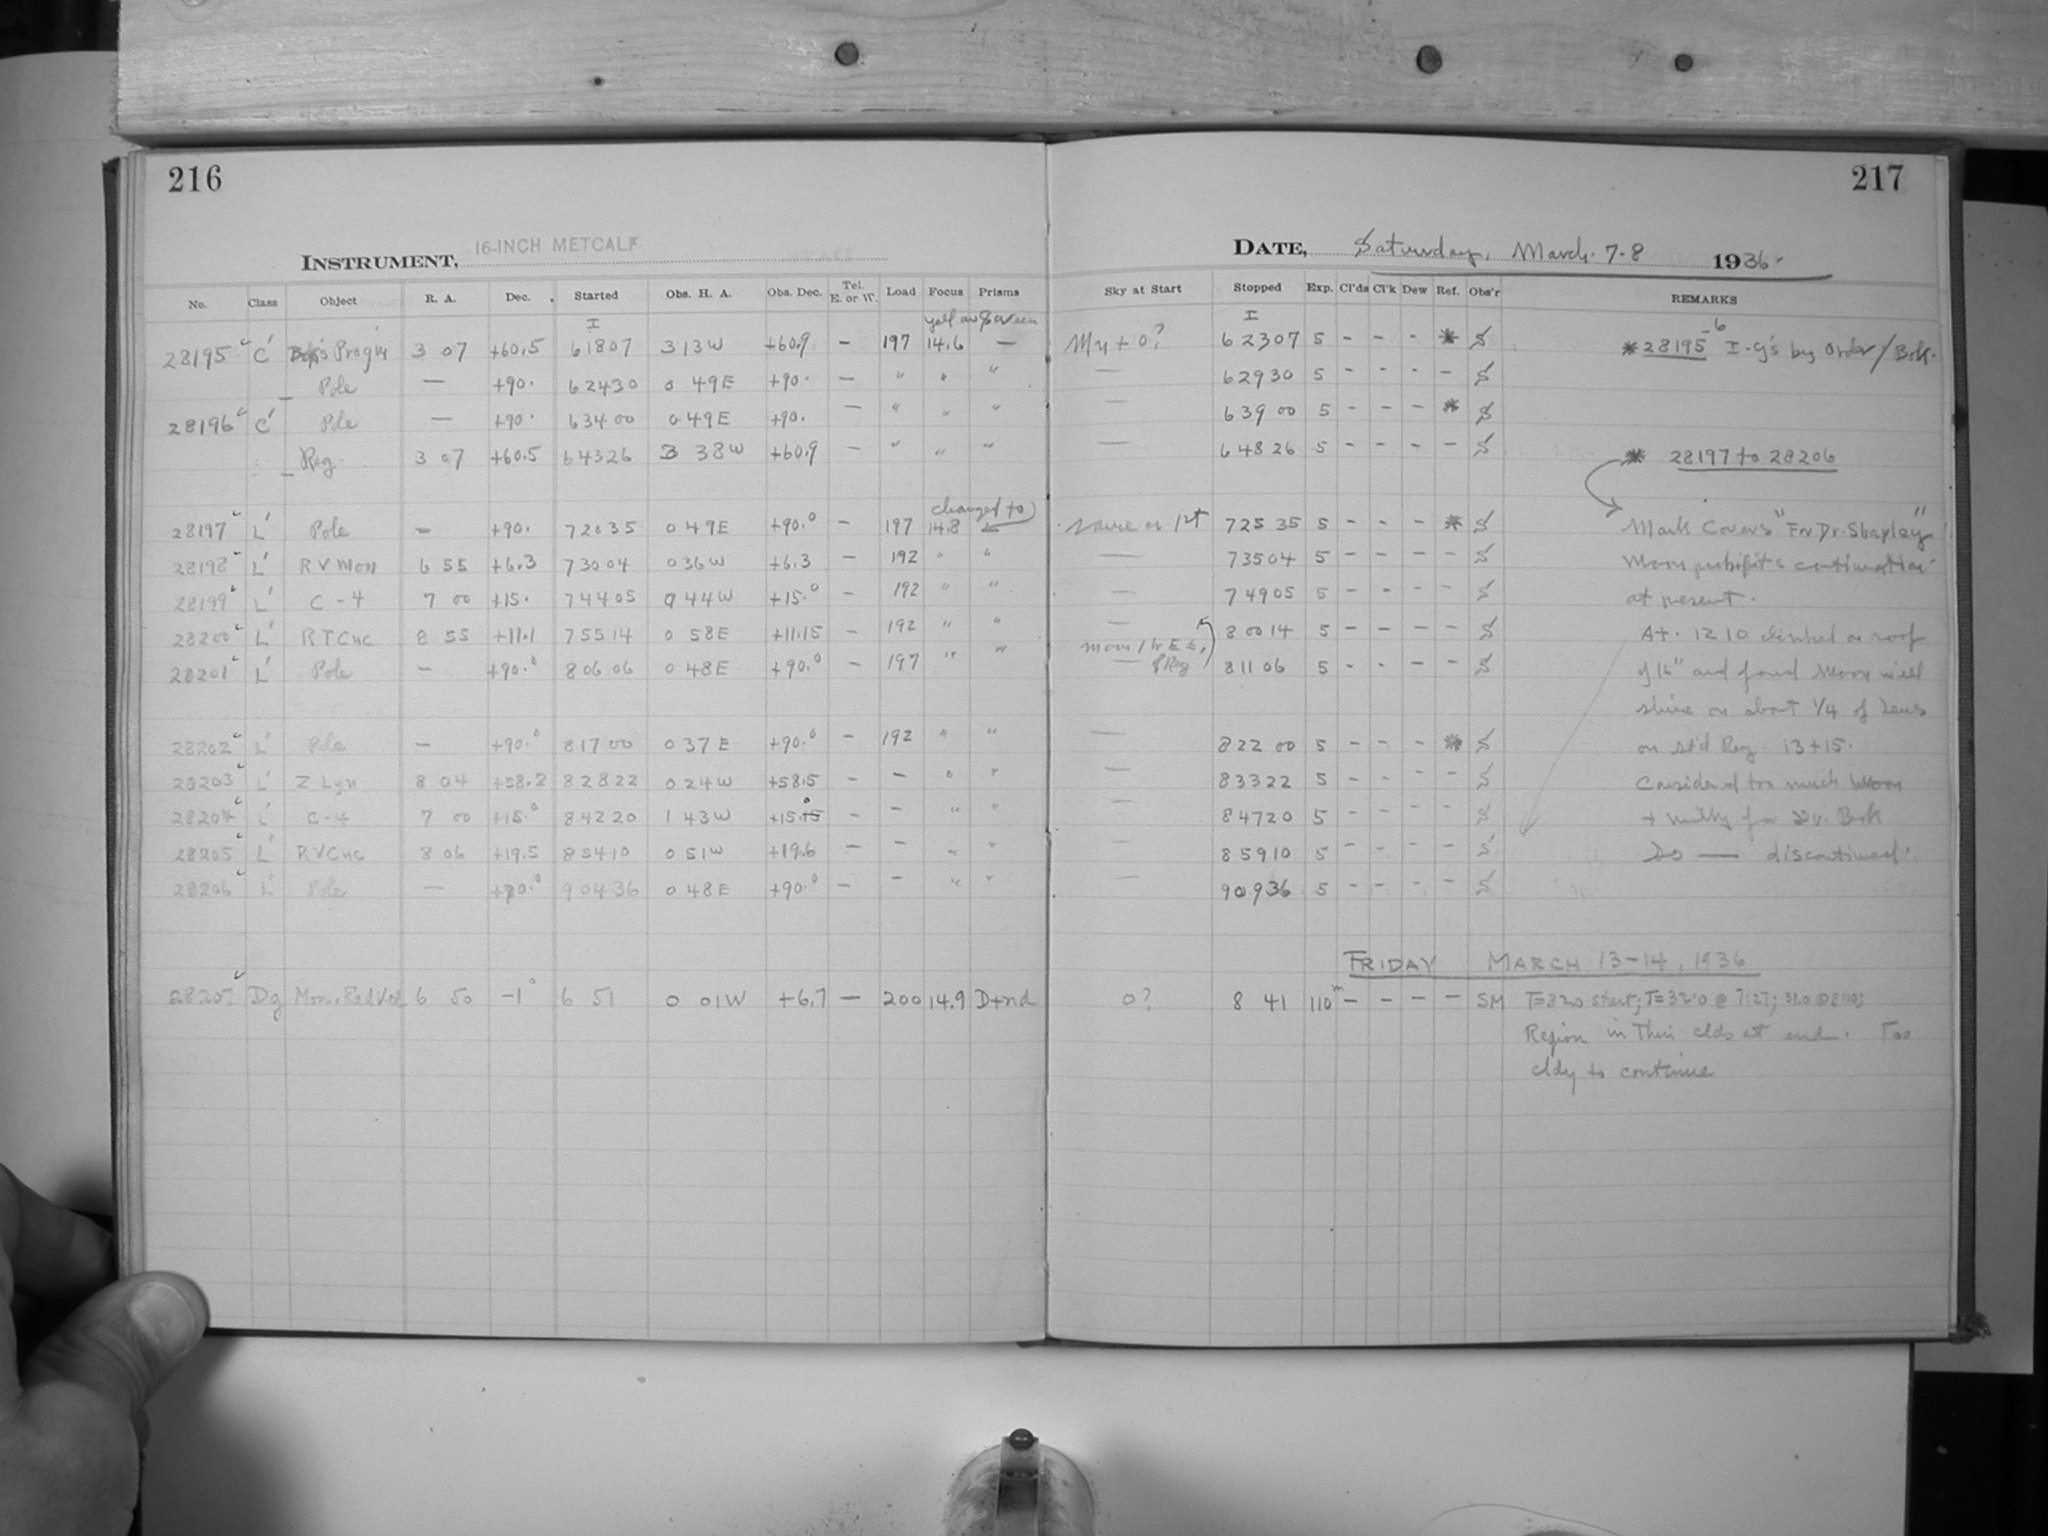 216
INSTRUMENT, 16-INCH METCALF
No. Class Object R. A. Dec. Started Obs. H. A. Obs. Dec. Tel. E. or W. Load Focus Prisms
I
28195 C' Prog's 3 07 +60.5 61807 3 13W +60.9 — 197 14.6 —
Pole — +90. 62430 0 49E +90. — " " "
28196 C' Pole — +90. 63400 0 49E +90. — " " "
Reg 3 07 +60.5 64326 3 38W +60.9 — " " "
changed to
28197 L' Pole — +90. 72035 0 49E +90.° — 197 14.8
28198 L' RV Mon 6 55 +6.3 73004 0 36W +6.3 — 192 " "
28199 L' C-4 7 00 +15. 74405 0 44W +15.° — 192 " "
28200 L' RT Cnc 8 55 +11.1 75514 0 58E +11.15 — 192 " "
28201 L' Pole — +90.° 80606 0 48E +90.° — 197 " "
28202 L' Pole — +90.° 81700 0 37E +90.° — 192 " "
28203 L' Z Lyn 8 04 +58.2 82822 0 24W +58.5 — — " "
28204 L' C-4 7 00 +15.° 84220 1 43W +15.° — — " "
28205 L' RV Cnc 8 06 +19.5 85410 0 51W +19.6 — — " "
28206 L' Pole — +90.° 90436 0 48E +90.° — — " "
28207 Dg Mon. Rad Vel 6 50 -1° 6 51 0 01W +6.7 — 200 14.9 D+nd
217
DATE, Saturday, March 7-8 1936.
Sky at Start Stopped Exp. Cl'ds Cl'k Dew Ref. Obs'r REMARKS
I
62307 5 - - - * S *28195-6 I-G's by Order / Bok.
— 62930 5 - - - - S
— 63900 5 - - - * S
— 64826 5 - - - - S * 28197 to 28206
same as 1st 72535 5 - - - * S Mark Covers "For Dr. Shapley"
— 73504 5 - - - - S Moon prohibits continuation
— 74905 5 - - - - S at present.
— 80014 5 - - - - S At. 1210 climbed on roof
— 81106 5 - - - - S of 16" and found Moon will
shine on about 1/4 of Lens
— 82200 5 - - - * S on st'd Reg. 13+15.
— 83322 5 - - - - S Considered too much Moon
— 84720 5 - - - - S + milky for Dr. Bok
— 85910 5 - - - - S Do — discontinued.
— 90936 5 - - - - S
FRIDAY MARCH 13-14, 1936
0? 8 41 110m - - - - SM T=320 start; T=32.0 @ 7:27;
Region in Thin clds at end. Too
cldy to continue